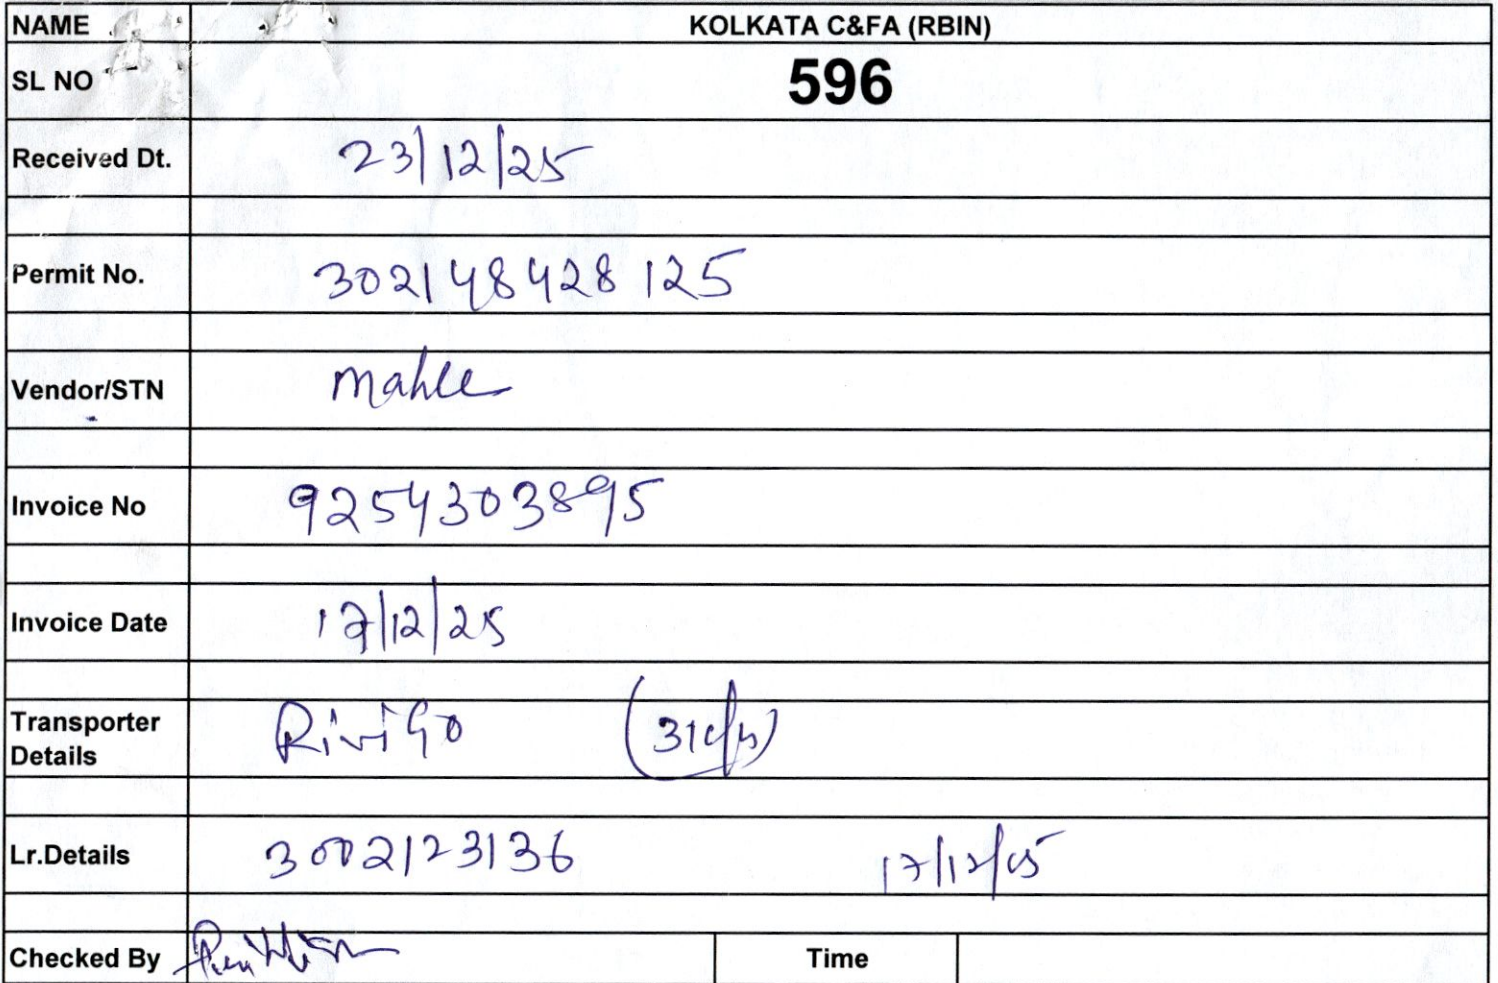 NAME KOLKATA C&FA (RBIN)
SL NO 596
Received Dt. 23/12/25
Permit No. 302148428125
Vendor/STN mahle
Invoice No 92543303895
Invoice Date 17/12/25
Transporter Details RiviGo (31c/s)
Lr.Details 3002123136 17/12/25
Checked By
Time